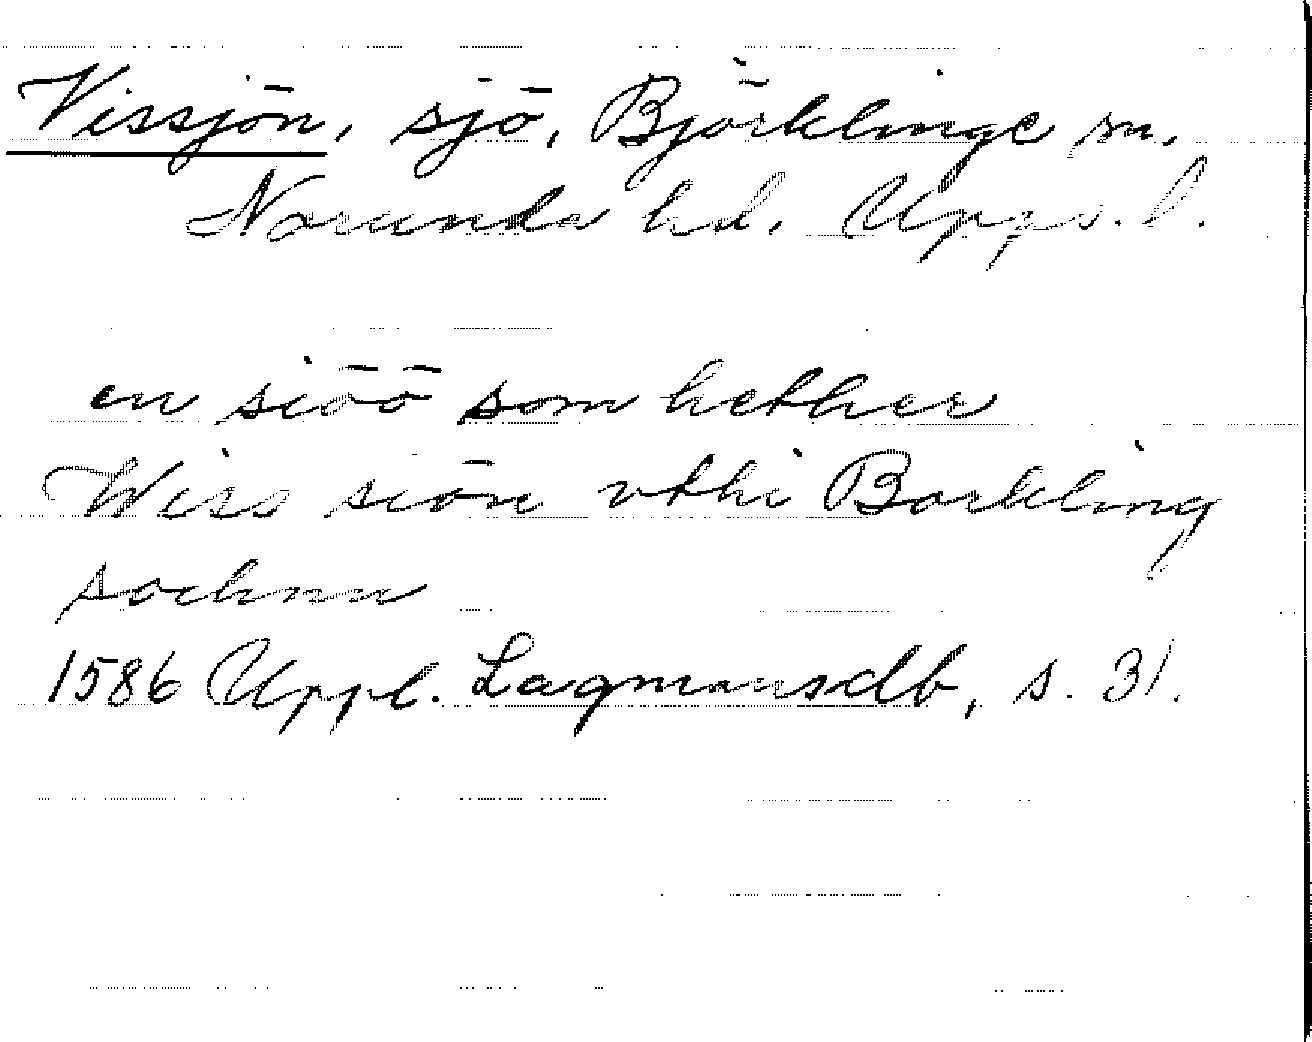 Vissjön, sjö, Björklinge sn.
Norunda hd. Upps. l.
en siöö som hether
Wiss siön vthi Borkling
sochnn
1586 Uppl. Lagmansdb, s. 31.